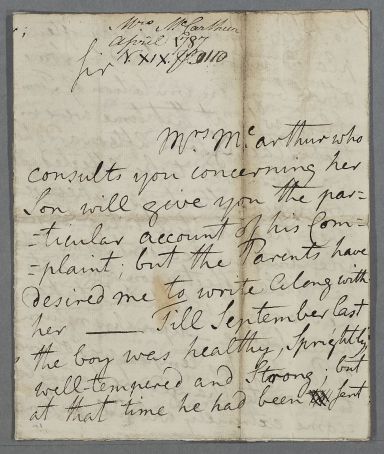 Mrs. McCarthur
April 1787
V. XIX. p. 110
Sir
Mrs. Mc.arthur who
consults you concerning her
Son will give you the par=
=ticular account of his Com=
=plaint; but the Parents have
desired me to write along with
her —— Till September last
the boy was healthy, Sprightly
well tempered and Strong; but
at that time he had been sent